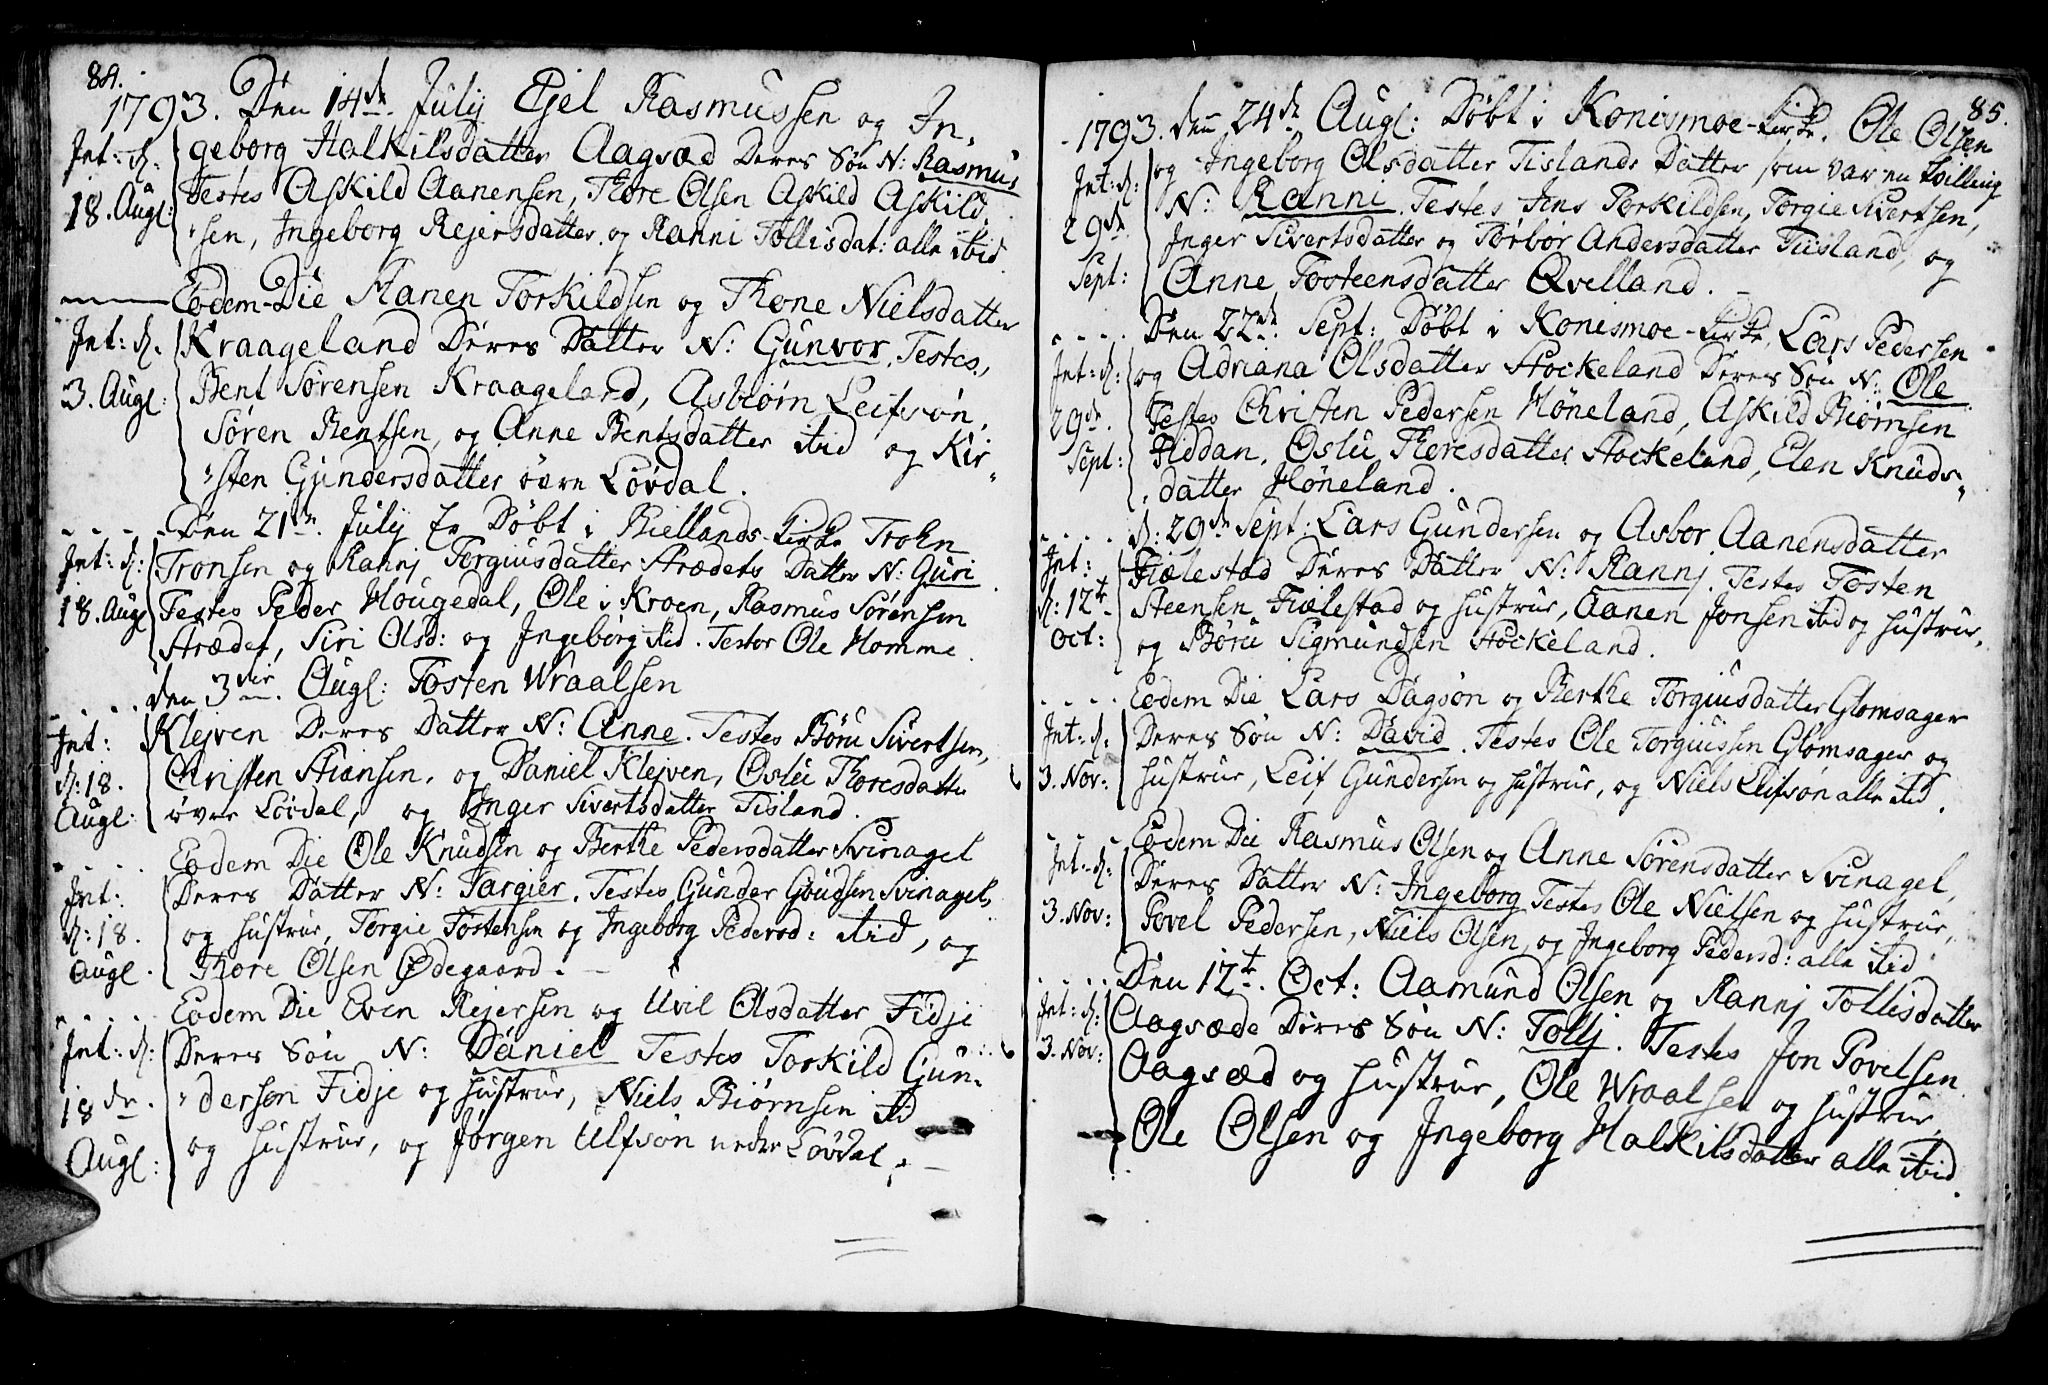 84.
1793. Den 14de July Ejel Rasmussen og In-
Int: d. geborg Halkilsdatter Aagsæd Deres Søn N: Rasmus
18. Augl: Testes Askild Aanensen, Thore Olsen Askild Askild-
sen, Ingeborg Rejersdatter og Ranni Tollisdat: alle ibid
Eodem-Die Aanen Torkildsen og Thone Nielsdatter
Int: d. Kraageland Deres Datter N: Gunvor. Testes,
3. Augl: Bent Sørensen Kraageland, Asbiørn Leifsøn,
Søren Bentsen, og Anne Bentsdatter ibid og Kir-
sten Gundersdatter øvre Løvdal.
Den 21de July Døbt i Biellands-Kirke Trohn
Int: d: Tronsen og Rannj Torgiusdatter Strædets Datter N: Guri
18. Augl Testes Peder Hougedal, Ole i Kroen, Rasmus Sørensen
Strædet, Siri Olsd: og Ingeborg ibid. Testor Ole Homme.
den 3die. Augl: Tosten Wraalsen
Int: Klejven Deres Datter N: Anne. Testes Børu Sivertsen,
d: 18. Christen Stiansen, og Daniel Klejven, Oslu Thoresdatter
Augl: øvre Løvdal, og Inger Sivertsdatter Tisland.
Eodem Die Ole Knudsen og Berthe Pedersdatter Svinagel
Int: Deres Datter N: Targier. Testes Gunder Goudsen Svinagel,
d: 18. og hustrue, Torgie Tostensen og Ingeborg Pedersd: ibid, og
Augl. Thore Olsen Ødegaard.
Eodem Die Even Rejersen og Uvil Olsdatter Fidje
Int: d: Deres Søn N: Daniel Testes Torkild Gun-
18de. dersen Fidje og hustrue, Niels Biørnsen ibid
Augl: og hustrue, og Jørgen Ulfsøn nedre Løvdal.
85.
1793. den 24de Augl: Døbt i Konismoe-Kirke. Ole Olsen
Int: d: og Ingeborg Olsdatter Tislands Datter som var en tvilling
29de N: Ranni. Testes Jens Torkildsen, Torgie Sivertsen,
Inger Sivertsdatter og Torbor Andersdatter Tiisland, og
Sept: Anne Tosteensdatter Qvelland.
Den 22de. Sept: Døbt i Konismoe-Kirke, Lars Pedersen
Int: d: og Adriana Olsdatter Stockeland Deres Søn N: Ole
29de. Testes Christen Pedersen Høneland, Askild Biørnsen
Sept: Fiddan, Oslu Thoresdatter Stockeland, Elen Knuds-
datter Høneland.
d: 29de Sept: Lars Gundersen og Asbor Aanensdatter
Int: Fielestad Deres Datter N: Rannj. Testes Tosten
d: 12te Steensen Fielestad og hustrue, Aanen Jonsen ibid og hustrue,
Oct: og Børu Sigmundsen Stockeland.
Eodem Die Lars Dagsøn og Berthe Torgiusdatter Glomsager
Int: d: Deres Søn N: David. Testes Ole Torgiussen Glomsager og
3. Nov: hustrue, Leif Gundersen og hustrue, og Niels Leifsøn alle ibid.
Eodem Die Rasmus Olsen og Anne Sørensdatter Svinagel,
Int: d: Deres Datter N: Ingeborg Testes Ole Nielsen og hustrue,
3. Nov: Povel Pedersen, Niels Olsen, og Ingeborg Pedersd: alle ibid
Den 12te. Oct: Aamund Olsen og Rannj Tollisdatter
Int: d: Aagsæde Deres Søn N: Tollj. Testes Jon Povelsen
3. Nov: Aagsæd og hustrue, Ole Wraalsen og hustrue,
Ole Olsen og Ingeborg Halkilsdatter alle ibid.